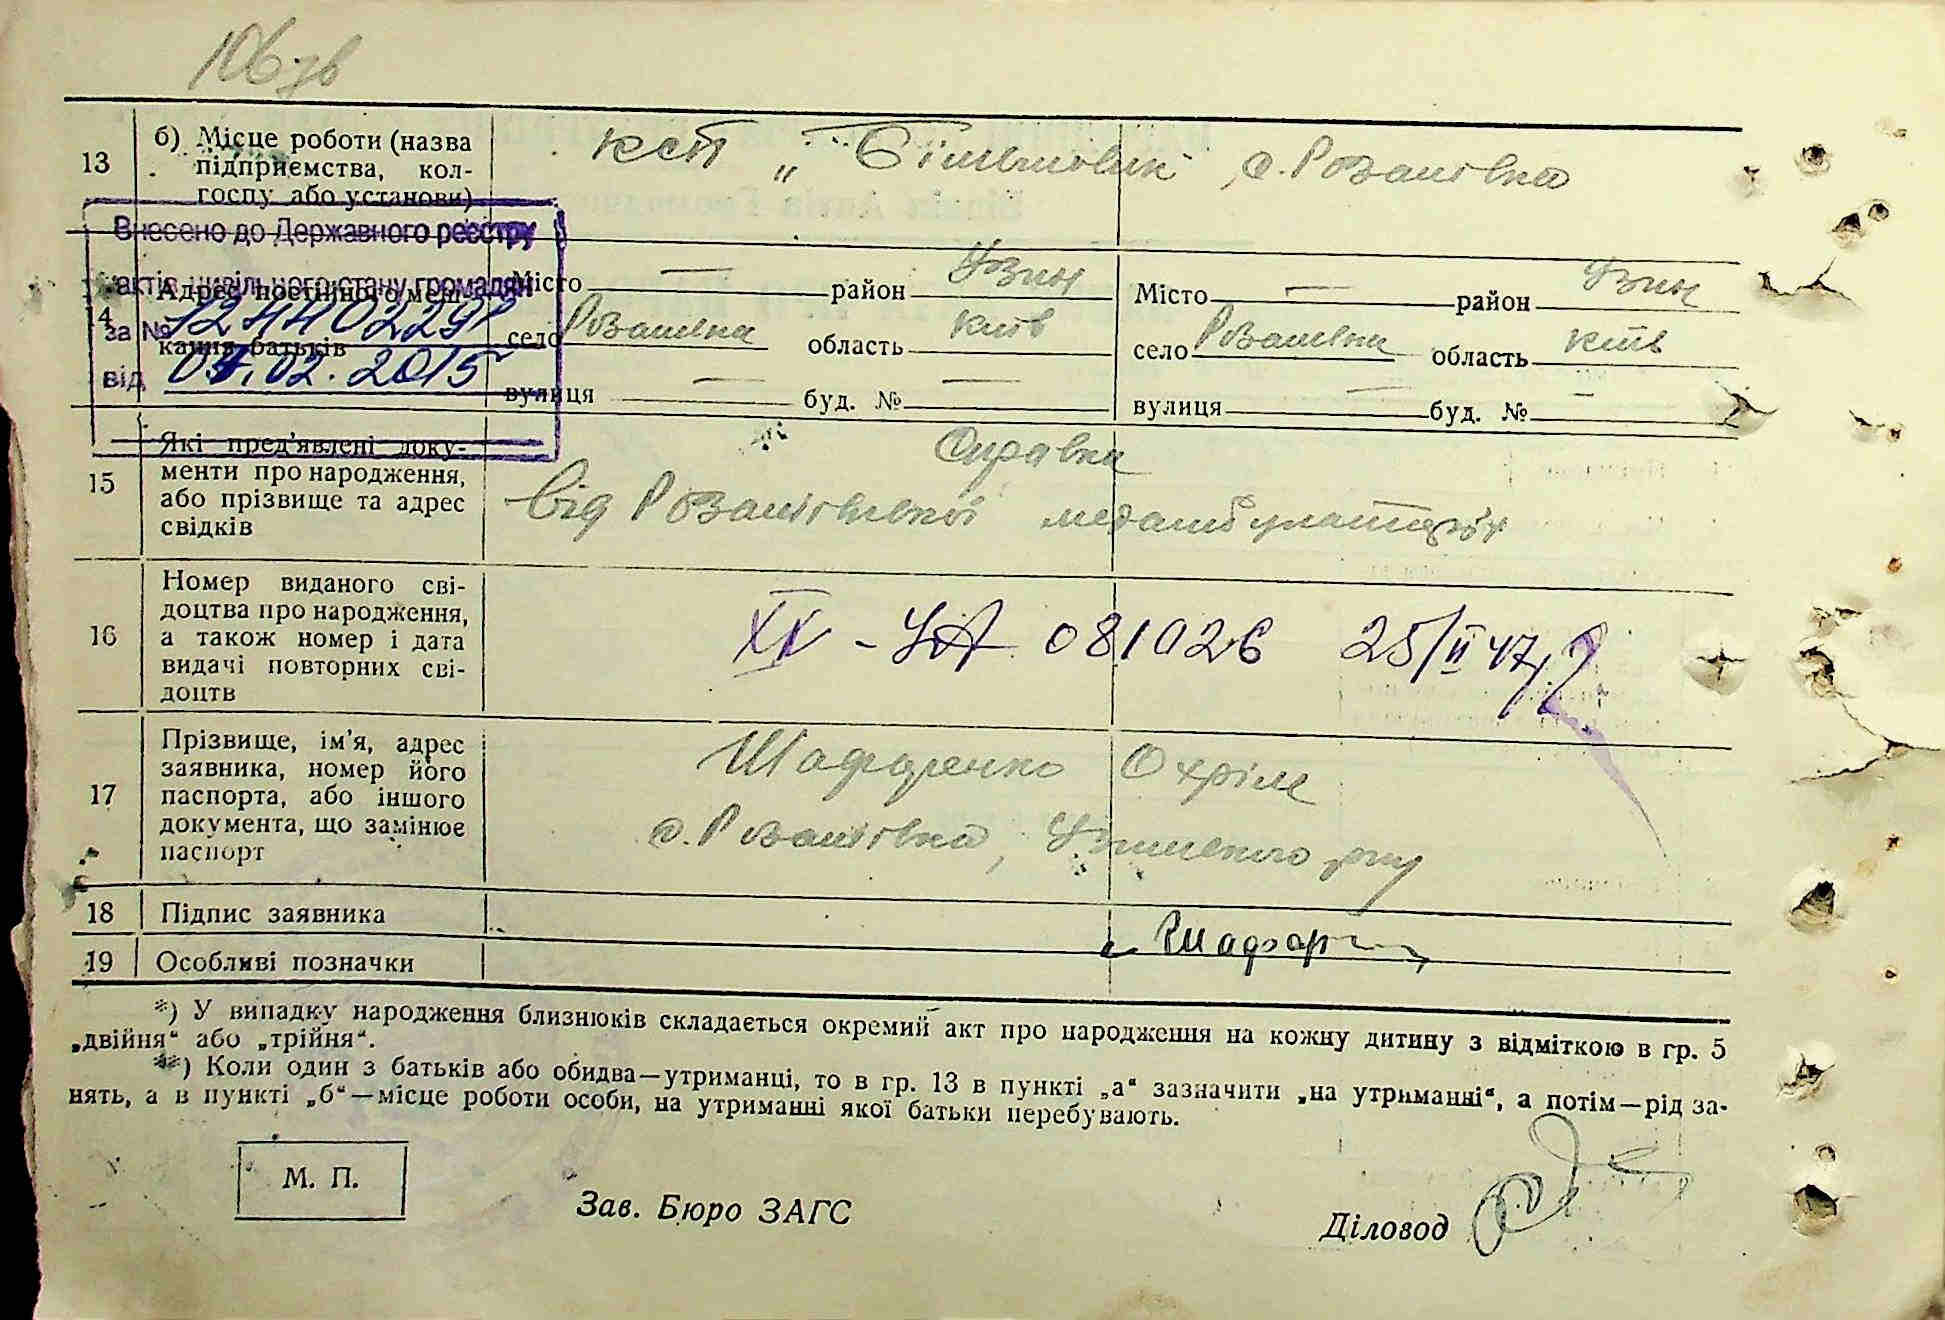 106 зв
13 б) Місце роботи (назва
підприємства, кол-
госпу або установи)
кст „Більшовик", с. Розаліївка
Внесено до Державного реєстру
актів цивільного стану громадян
за № 12440229
від 02.2015
14 Адрес постійного меш-
кання батьків
Місто — район Узин
село Розаліївка область Київ
вулиця — буд. № —
Місто — район Узин
село Розаліївка область Київ
вулиця — буд. № —
15 Які пред'явлені доку-
менти про народження,
або прізвище та адрес
свідків
Справка
від Розаліївської медамбулаторії
16 Номер виданого сві-
доцтва про народження,
а також номер і дата
видачі повторних сві-
доцтв
081026 25/II 47
17 Прізвище, ім'я, адрес
заявника, номер його
паспорта, або іншого
документа, що замінює
паспорт
Охрім
с. Розаліївка, Узинського р-ну
18 Підпис заявника
19 Особливі позначки
*) У випадку народження близнюків складається окремий акт про народження на кожну дитину з відміткою в гр. 5
„двійня" або „трійня".
**) Коли один з батьків або обидва—утриманці, то в гр. 13 в пункті „а" зазначити „на утриманні", а потім—рід за-
нять, а в пункті „б"—місце роботи особи, на утриманні якої батьки перебувають.
М. П.
Зав. Бюро ЗАГС
Діловод